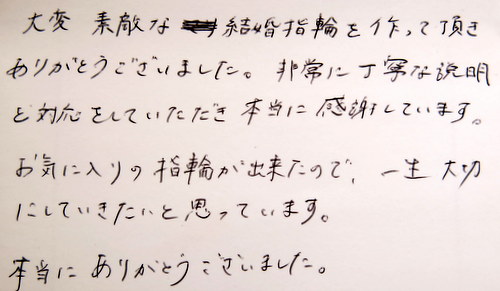 大変 素敵な 結婚指輪を作って頂き
ありがとうございました。非常に丁寧な説明
と対応をしていただき本当に感謝しています。
お気に入りの指輪が出来たので、一生大切
にしていきたいと思っています。
本当にありがとうございました。